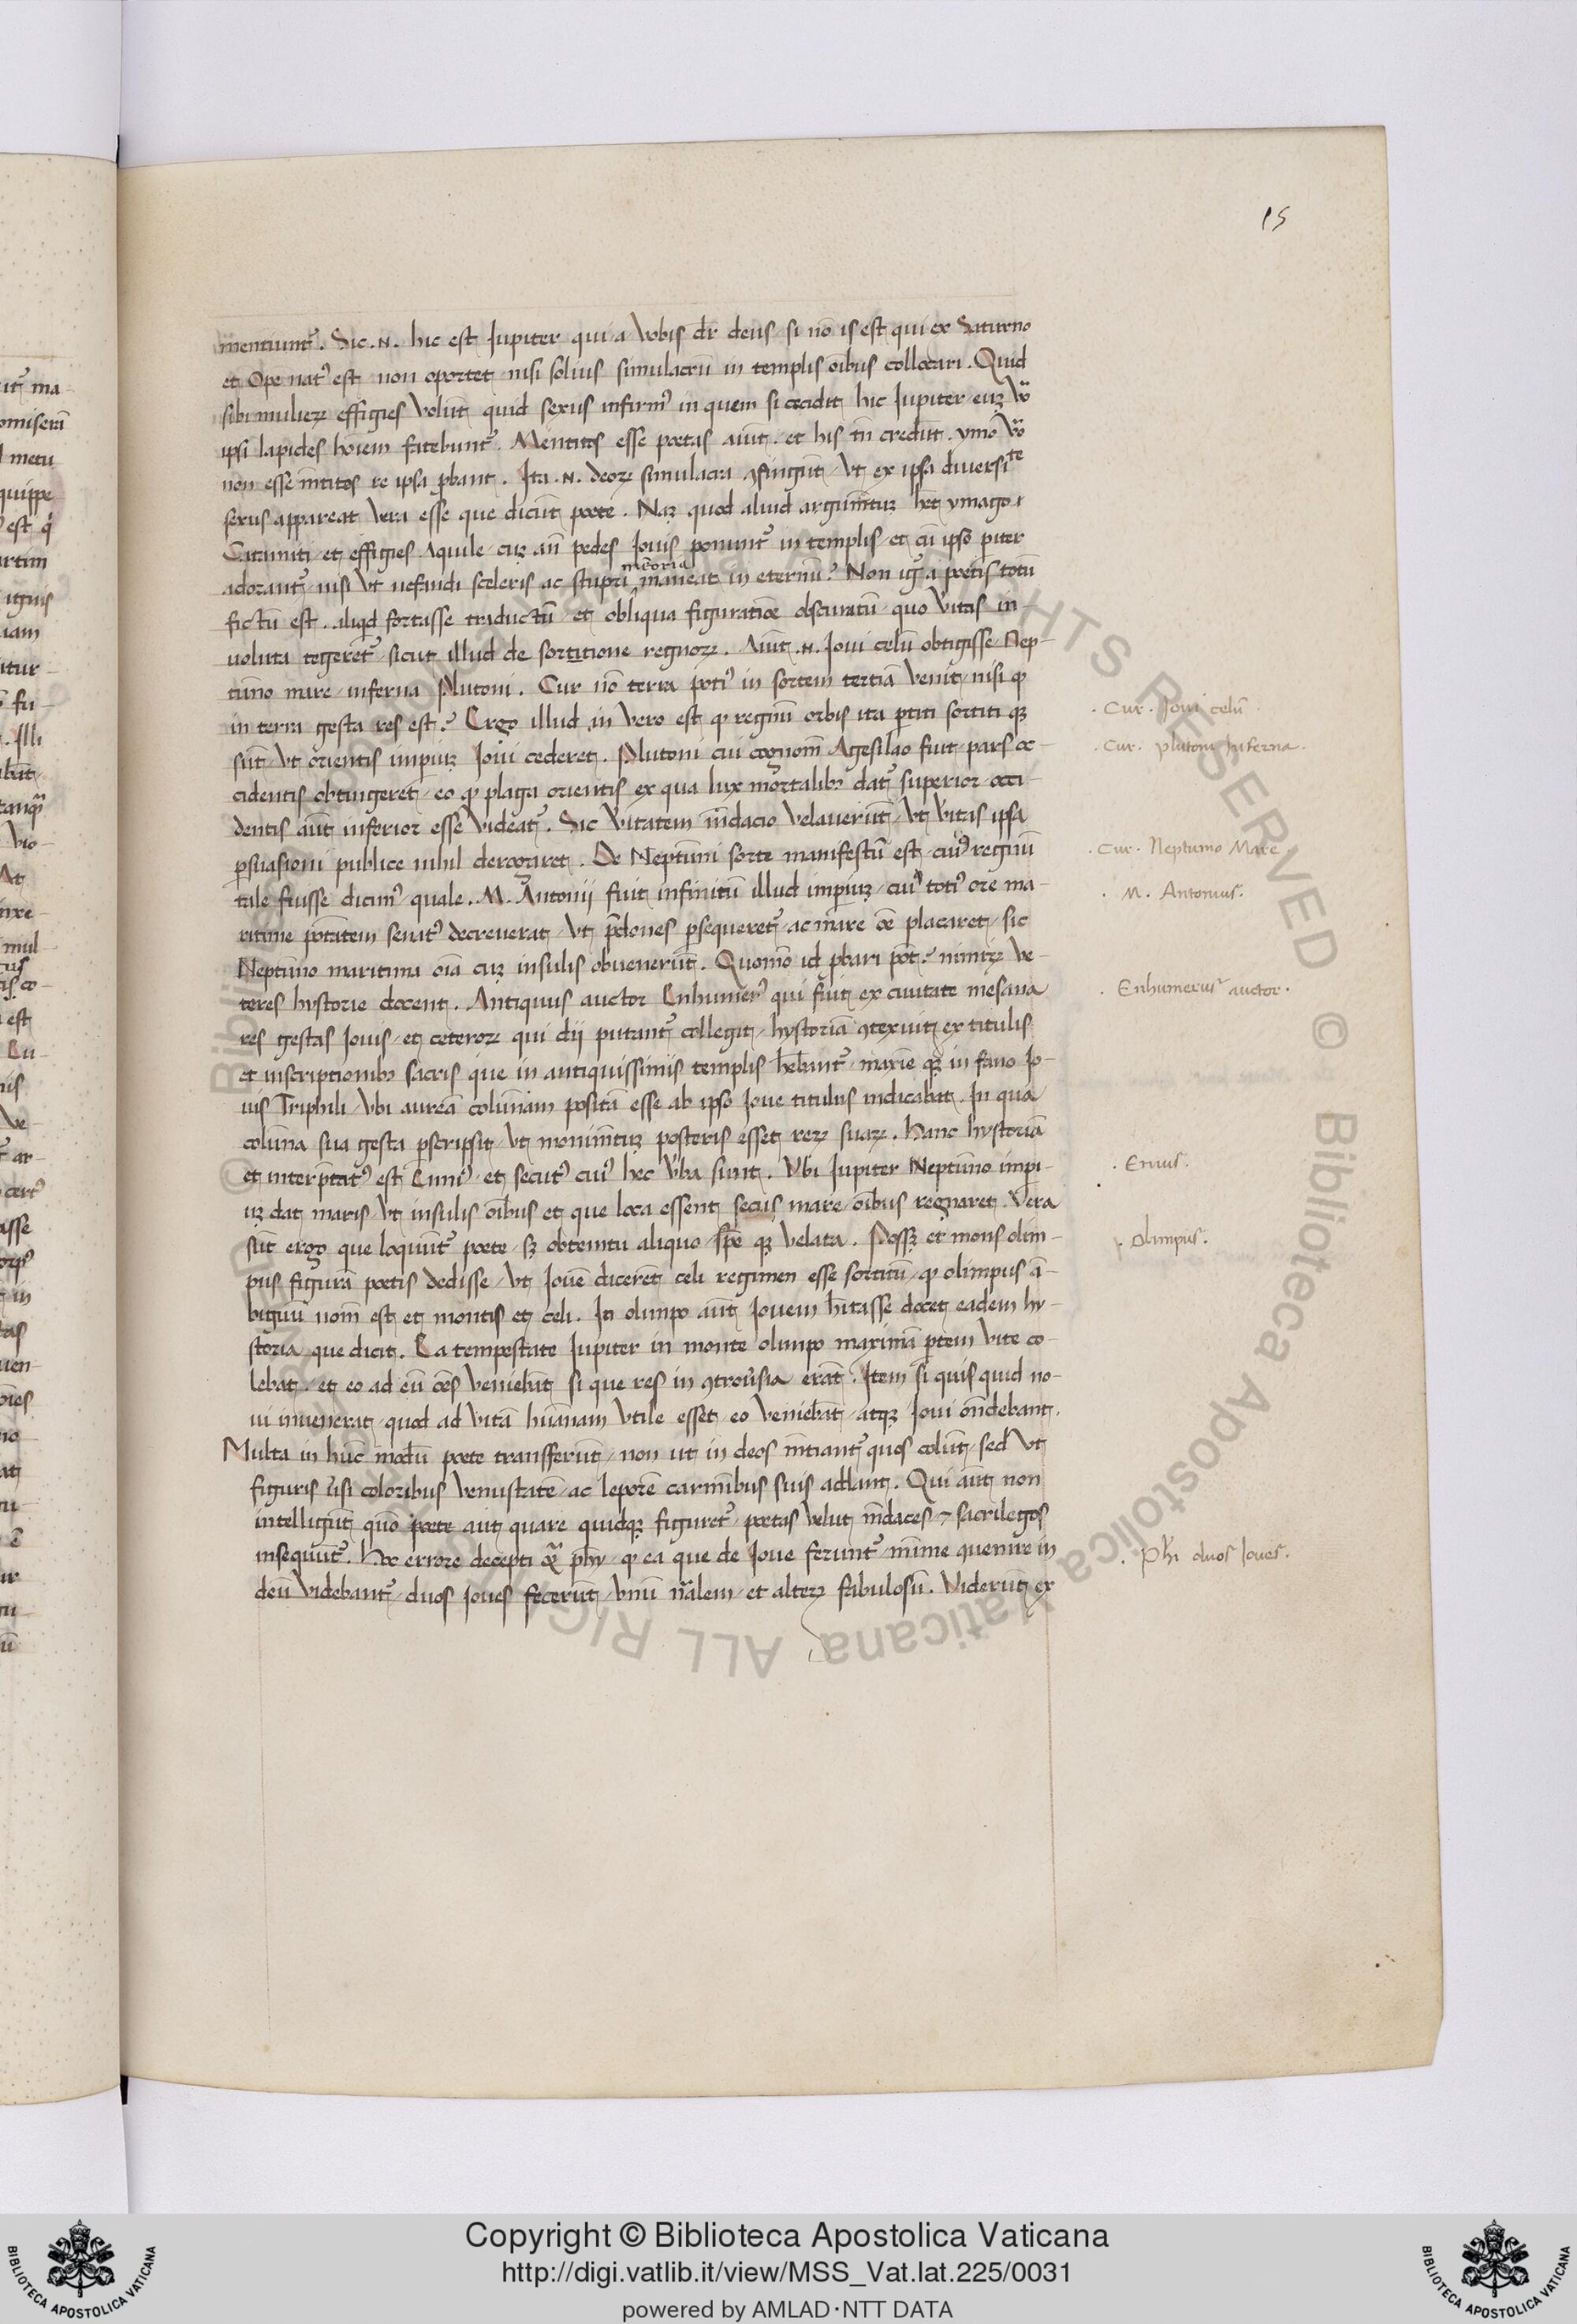 15
mentiunt᷒. Sic .N. hic est Jupiter qui a vobis dr̄ deus si nō is est qui ex Saturno
et Ope nat᷒ est non oportet nisi solius simulacrū in templis oīb᷒ collocari. Quid
sibi mulieꝝ effigies volūt quid sexus infirm᷒ in quem si cecidit hic Jupiter euꝫ v̄o
ipsi lapides hoīem fatebunt᷒. Mentitos esse poetas aiūt. et his tn̄ credūt. ymō v̄o
non esse mētitos re ipsa ꝓbant. Ita .N. deoꝝ simulacra ꝯfingūt / vt ex ipsa diversiᵗᵉ
sexus appareat vera esse que dicūt poete. Naꝫ quod aliud argumētuꝫ hēt ymago
Catamiti / et effigies Aquile / cuꝫ an̄ pedes Jovis ponunt᷒ in templis / et cū ipso ꝑiter
adorant᷒ / nisi vt nefandi sceleris ac stupri mēoria maneat in eternū? Non ig᷒ a poetis totū
fictū est. aliqd fortasse traductū / et obliqua figuratiōe obscuratū / quo v̄itas in-
voluta tegeret᷒ / sicut illud de sortitione regnoꝝ. Aiūt .N. Jovi celū obtigisse / Nep-
tūno mare / inferna Plutoni. Cur nō terra poti᷒ in sortem tertiā venit / nisi ꝙ
in terra gesta res est? Ergo illud in vero est ꝙ regnū orbis ita ꝑtiti sortiti qꝫ
sūt / vt orientis imperiuꝫ Jovi cederet. Plutoni cui cognomē Agesilao fuit / pars oc-
cidentis obtingeret / eo ꝙ plaga orientis ex qua lux mortalib᷒ dat᷒ superior / occi-
dentis aūt inferior esse videat᷒. Sic v̄itatem mēdacio velaverūt / vt v̄itas ipsa
ꝑsuasioni publice nihil derogaret. De Neptūni sorte manifestū est / cui᷒ regnū
tale fuisse dicim᷒ quale .M. Antonii fuit infinitū illud imperiuꝫ / cui᷒ toti᷒ ore ma-
ritime potātem senat᷒ decreverat / vt p̄dones ꝑsequeret᷒ / ac mare ōe placaret / sic
Neptūno maritima oīa cuꝫ insulis obvenerūt. Quomō id ꝓbari pōt? nimiꝝ ve-
teres hystorie docent. Antiquus auctor Enhumer᷒ qui fuit ex civitate mesana
res gestas Jovis / et ceteroꝝ qui dii putant᷒ collegit / hystoriā ꝯtexuit ex titulis
et inscriptionib᷒ sacris que in antiquissimis templis hēbant᷒ / maxīe qꝫ in fano Jo-
vis Triphili / vbi aureā colūnam positā esse ab ipso Jove titulus indicabat. In qua
colūna sua gesta ꝑscripsit / vt monimētuꝫ posteris esset reꝝ suaꝝ. Hanc hystoriā
et interp̄tat᷒ est Enni᷒ / et secut᷒ cui᷒ hec v̄ba sunt. Vbi Jupiter Neptūno imperi-
uꝫ dat maris / vt insulis oībus et que loca essent secus mare / oībus regnaret. Vera
sūt ergo que loquūt᷒ poete / sꝫ obtentu aliquo / spē qꝫ velata. Possꝫ et mons olim-
pus figurā poetis dedisse / vt Jovē dicerēt celi regimen esse sortitū / ꝙ olimpus ā-
biguū nomē est et montis et celi. In olimpo aūt Jovem hītasse docet eadem hy-
storia que dicit. Ea tempestate Jupiter in monte olimpo maximā ꝑtem vite co-
lebat / et eo ad eū ōes veniebāt si que res in ꝯtrov̄sia erāt. Item si quis quid no-
vi invenerat / quod ad vitā hūanam vtile esset / eo veniebāt / atqꝫ Jovi ōndebant.
Multa in hūc modū poete transferūt / non ut in deos mētiant᷒ quos colūt / sed vt
figuris v̄si coloribus venustatē ac leporē carmībus suis addant. Qui aūt non
intelligūt quō poete aut quare quidqꝫ figuret᷒ / poetas velut mēdaces ⁊ sacrilegos
insequūt᷒. Hoc errore decepti qꝫ phȳ / ꝙ ea que de Jove ferunt᷒ mīme ꝯvenire in
deū videbant᷒ / duos Joves fecerūt / vnū n̄alem / et alteꝝ fabulosū. Viderūt ex
. Cur . Jovi celū
. Cur . plutoni Inferna .
. Cur . Neptumo Mare .
. M. Antonius .
. Enhumerus auctor .
. Enius .
. Olimpus .
. Phi duos Joves .
Copyright © Biblioteca Apostolica Vaticana
http://digi.vatlib.it/view/MSS_Vat.lat.225/0031
powered by AMLAD·NTT DATA
BIBLIOTECA APOSTOLICA VATICANA
BIBLIOTECA APOSTOLICA VATICANA